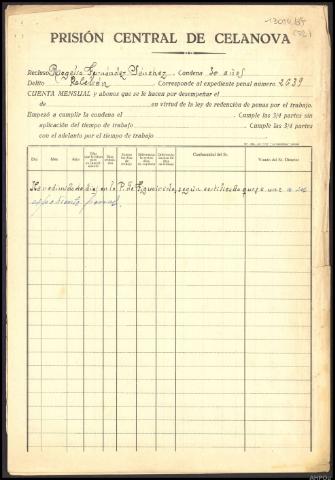 13014/57
(52)
PRISIÓN CENTRAL DE CELANOVA
Recluso Rogelio Fernández Sánchez Condena 30 años
Delito Rebelión Corresponde al expediente penal número 2639
CUENTA MENSUAL y abonos que se le hacen por desempeñar el
de en virtud de la ley de redención de penas por el trabajo.
Empezó a cumplir la condena el Cumple las 3/4 partes sin
aplicación del tiempo de trabajo Cumple las 3/4 partes
con el adelanto por el tiempo de trabajo
Día Mes Año Conformidad del Sr. Visado del Sr. Director
Ha redimido días en la P. de Figueirido, según certificado que se une a su
expediente penal.
AHPOU